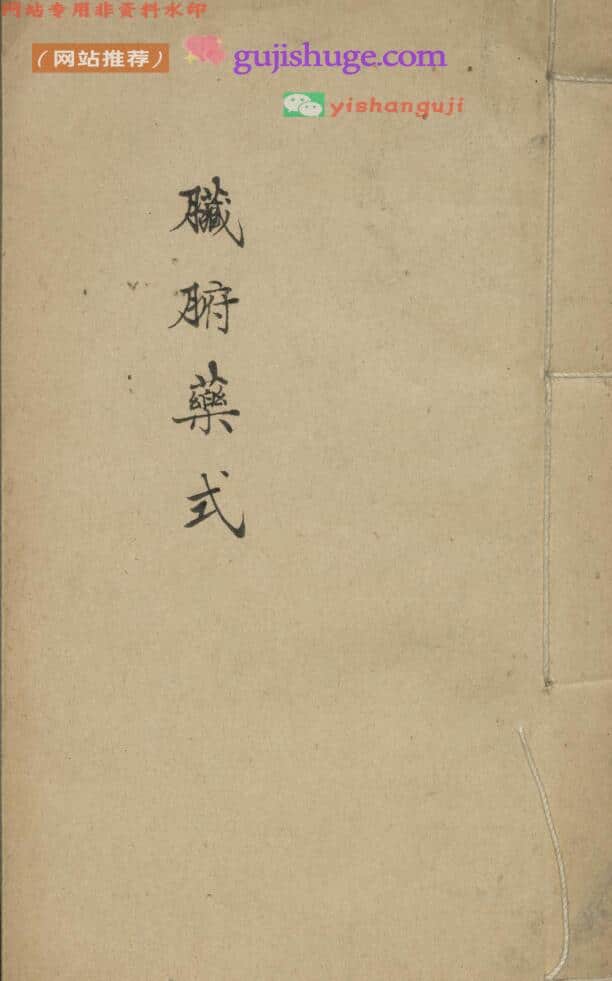 网站专用非资料水印
（网站推荐）
gujishuge.com
yishanguji
臟腑藥式